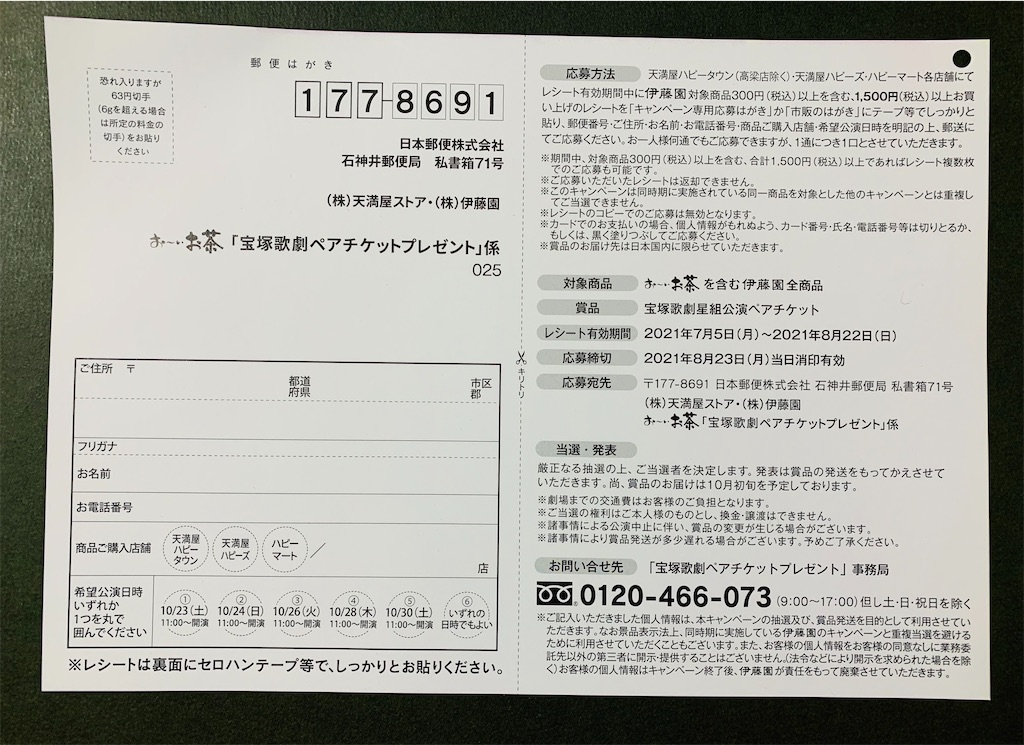 郵便はがき
恐れ入りますが
63円切手
(6gを超える場合
は所定の料金の
切手)をお貼り
ください
177-8691
日本郵便株式会社
石神井郵便局 私書箱71号
(株)天満屋ストア・(株)伊藤園
お〜いお茶「宝塚歌劇ペアチケットプレゼント」係
025
ご住所 〒
都道
府県
市区
郡
フリガナ
お名前
お電話番号
商品ご購入店舗
天満屋
ハピー
タウン
天満屋
ハピーズ
ハピー
マート
/
店
希望公演日時
いずれか
1つを丸で
囲んでください
① 10/23(土) 11:00〜開演
② 10/24(日) 11:00〜開演
③ 10/26(火) 11:00〜開演
④ 10/28(木) 11:00〜開演
⑤ 10/30(土) 11:00〜開演
⑥ いずれの日時でもよい
※レシートは裏面にセロハンテープ等で、しっかりとお貼りください。
キリトリ
応募方法 天満屋ハピータウン(高梁店除く)・天満屋ハピーズ・ハピーマート各店舗にて
レシート有効期間中に伊藤園対象商品300円(税込)以上を含む、1,500円(税込)以上お買
い上げのレシートを「キャンペーン専用応募はがき」か「市販のはがき」にテープ等でしっかりと
貼り、郵便番号・ご住所・お名前・お電話番号・商品ご購入店舗・希望公演日時を明記の上、郵送に
てご応募ください。お一人様何通でもご応募できますが、1通につき1口とさせていただきます。
※期間中、対象商品300円(税込)以上を含む、合計1,500円(税込)以上であればレシート複数枚
でのご応募も可能です。
※ご応募いただいたレシートは返却できません。
※このキャンペーンは同時期に実施されている同一商品を対象とした他のキャンペーンとは重複し
てご当選できません。
※レシートのコピーでのご応募は無効となります。
※カードでのお支払いの場合、個人情報がもれぬよう、カード番号・氏名・電話番号等は切りとるか、
もしくは、黒く塗りつぶしてご応募ください。
※賞品のお届け先は日本国内に限らせていただきます。
対象商品 お〜いお茶を含む伊藤園全商品
賞品 宝塚歌劇星組公演ペアチケット
レシート有効期間 2021年7月5日(月)〜2021年8月22日(日)
応募締切 2021年8月23日(月)当日消印有効
応募宛先 〒177-8691 日本郵便株式会社 石神井郵便局 私書箱71号
(株)天満屋ストア・(株)伊藤園
お〜いお茶「宝塚歌劇ペアチケットプレゼント」係
当選・発表
厳正なる抽選の上、ご当選者を決定します。発表は賞品の発送をもってかえさせて
いただきます。尚、賞品のお届けは10月初旬を予定しております。
※劇場までの交通費はお客様のご負担となります。
※ご当選の権利はご本人様のものとし、換金・譲渡はできません。
※諸事情による公演中止に伴い、賞品の変更が生じる場合がございます。
※諸事情により賞品発送が多少遅れる場合がございます。予めご了承ください。
お問い合せ先 「宝塚歌劇ペアチケットプレゼント」事務局
0120-466-073(9:00〜17:00)但し土・日・祝日を除く
※ご記入いただきました個人情報は、本キャンペーンの抽選及び、賞品発送を目的として利用させてい
ただきます。なお景品表示法上、同時期に実施している伊藤園のキャンペーンと重複当選を避ける
ために利用させていただくこともございます。また、お客様の個人情報をお客様の同意なしに業務委
託先以外の第三者に開示・提供することはございません。(法令などにより開示を求められた場合を除
く)お客様の個人情報はキャンペーン終了後、伊藤園が責任をもって廃棄させていただきます。